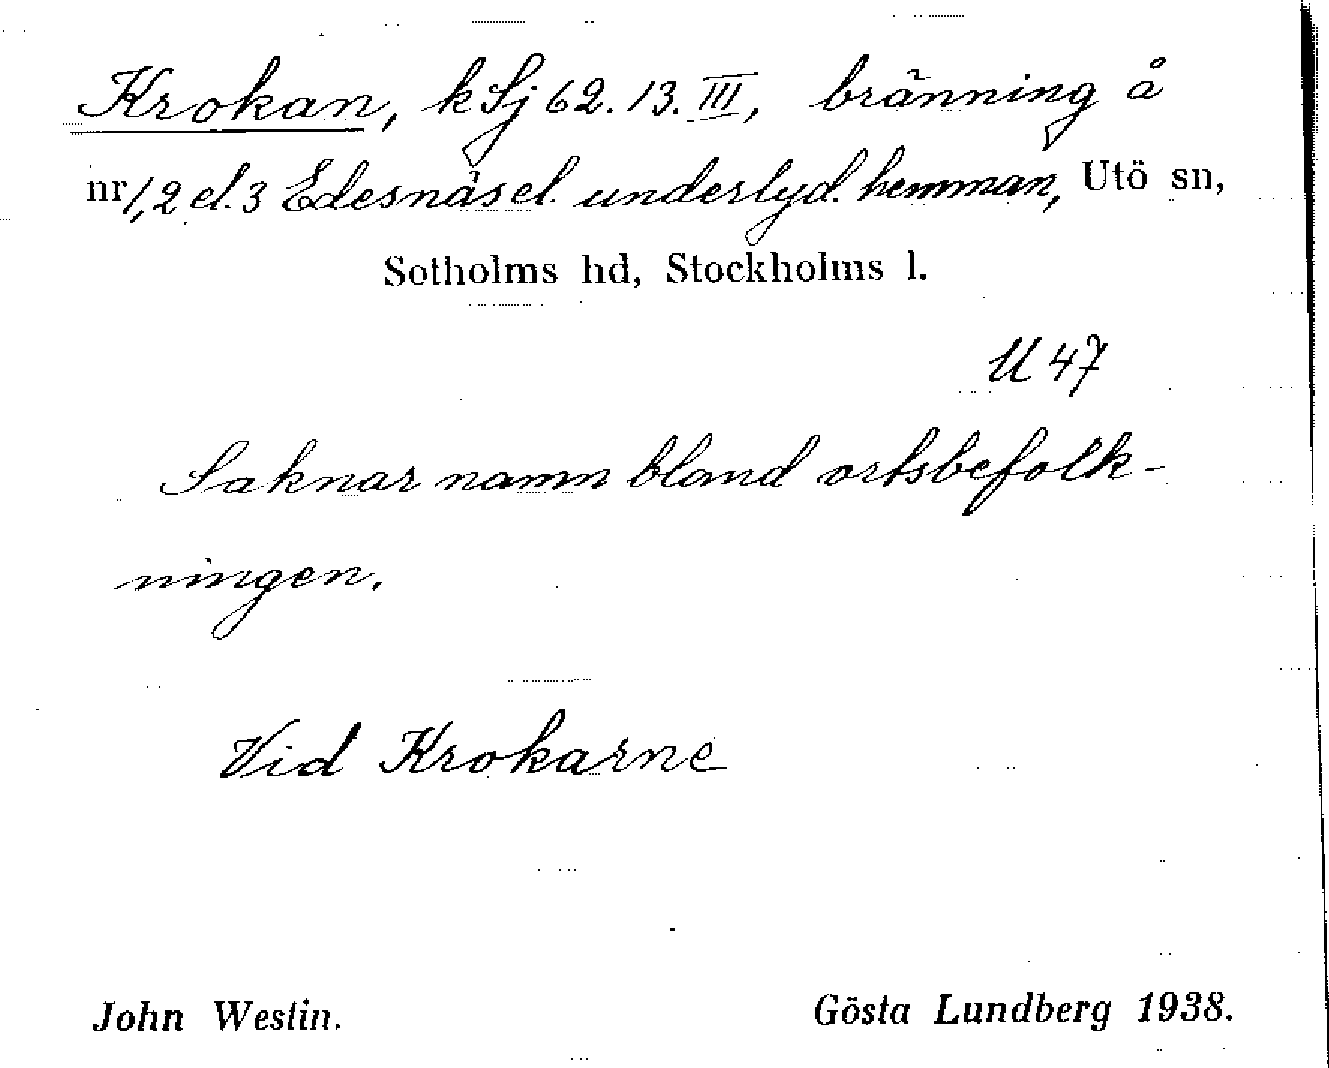 Krokan, k Sj 62. 13. III, bränning å
nr 1, 2 el. 3 Edesnäs el. underlyd. hemman, Utö sn,
Sotholms hd, Stockholms l.
U 47
Saknar namn bland ortsbefolk-
ningen.
Vid Krokarne
John Westin. Gösta Lundberg 1938.